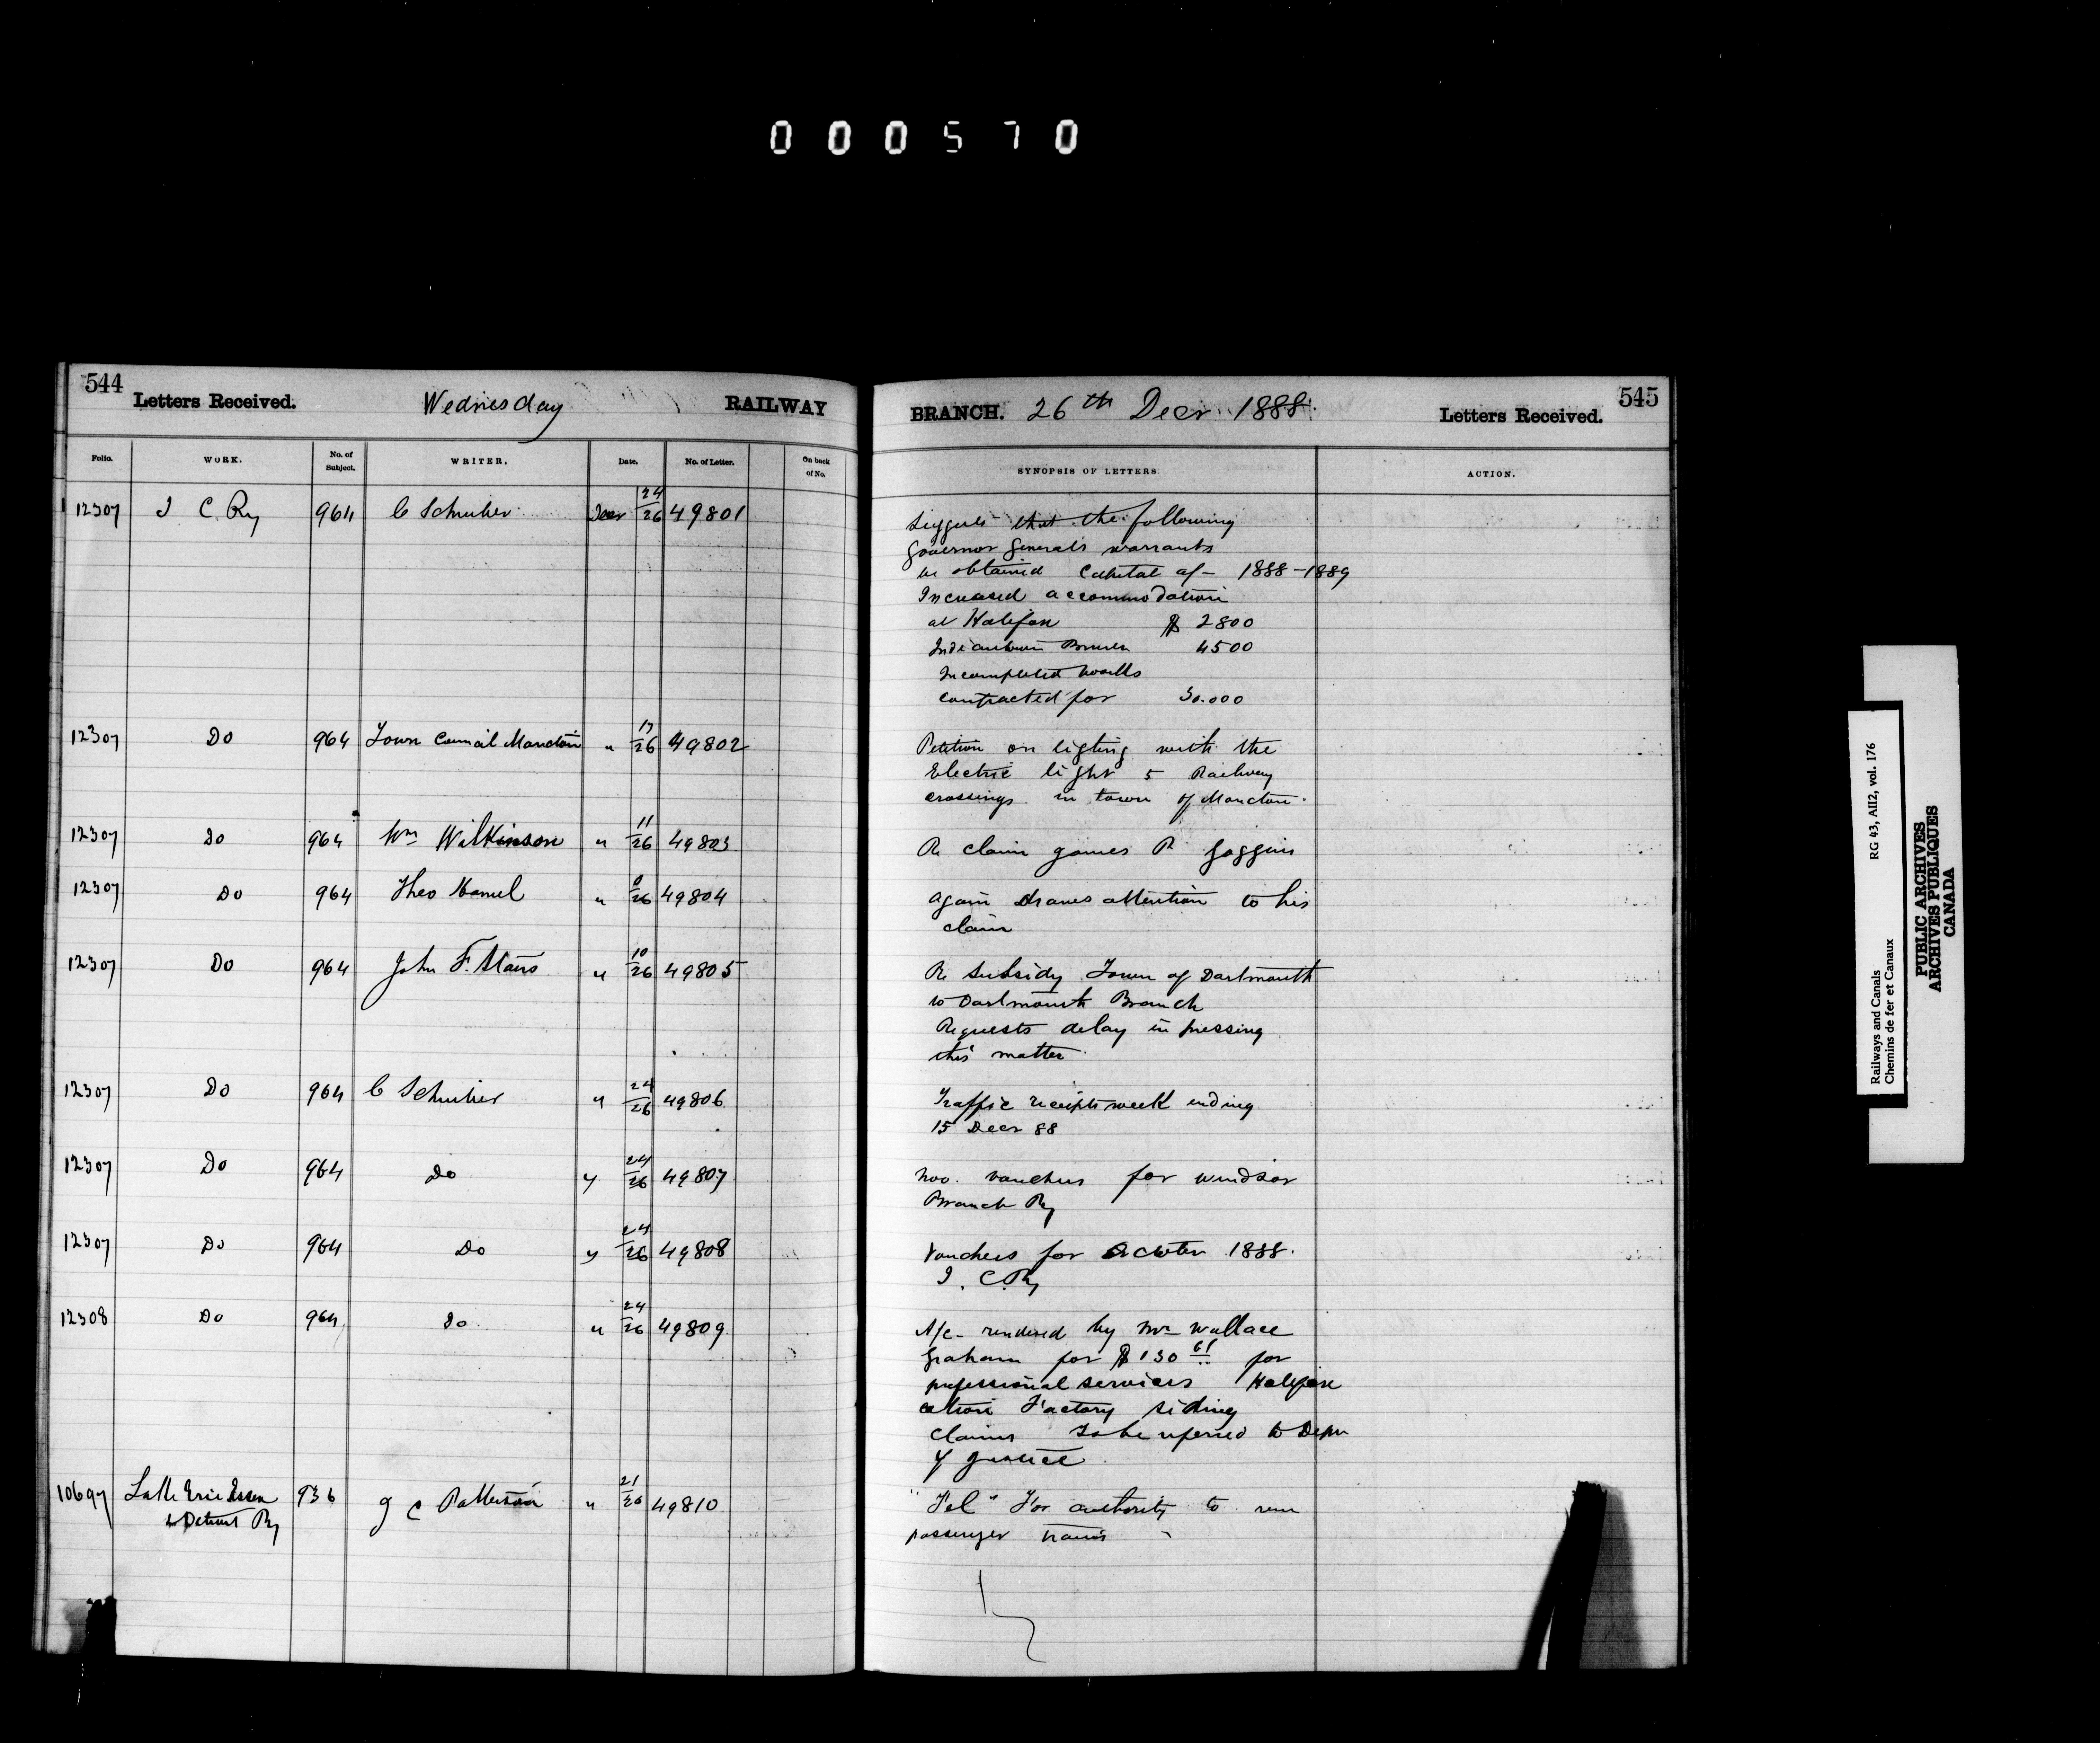 000570
544
Letters Received.
Wednesday
RAILWAY
Folio.
WORK.
No. of Subject.
WRITER.
Date.
No. of Letter.
On back of No.
12307 I C Ry 964 C Schreiber Decr 24/26 49801
12307 Do 964 Town Council Moncton " 17/26 49802
12307 Do 964 Wm Wilkinson " 11/26 49803
12307 Do 964 Theo Hamel " 26 49804
12307 Do 964 John F. Stairs " 10/26 49805
12307 Do 964 C Schreiber " 24/26 49806
12307 Do 964 Do " 24/26 49807
12307 Do 964 Do " 24/26 49808
12308 Do 964 Do " 24/26 49809
10697 Lake Erie Essex 936 J C Patterson " 21/26 49810
& Detroit Ry
BRANCH.
26th Decr 1888.
Letters Received.
545
SYNOPSIS OF LETTERS.
ACTION.
Suggests that the following
Governor Generals warrants
be obtained Capital a/- 1888-1889
Increased accommodation
at Halifax $ 2800
Indiantown Branch 4500
Incompleted works
contracted for 30.000
Petition on ligting with the
Electric light 5 Railway
crossings in town of Moncton.
Re claim James R Goggin
Again draws attention to his
claim
Re subsidy Town of Dartmouth
to Dartmouth Branch
Requests delay in pressing
this matter
Traffic receipts week ending
15 Decr 88
Nov. vouchers for Windsor
Branch Ry
Vouchers for October 1888.
I. C. Ry
A/c- rendered by Mr Wallace
Graham for $130 61 for
professional services Halifax
cotton Factory siding
claims To be referred to Dept
of Justice
"Tel" For authority to run
passenger trains
Railways and Canals RG 43, AII2, vol. 176
Chemins de fer et Canaux
PUBLIC ARCHIVES
ARCHIVES PUBLIQUES
CANADA